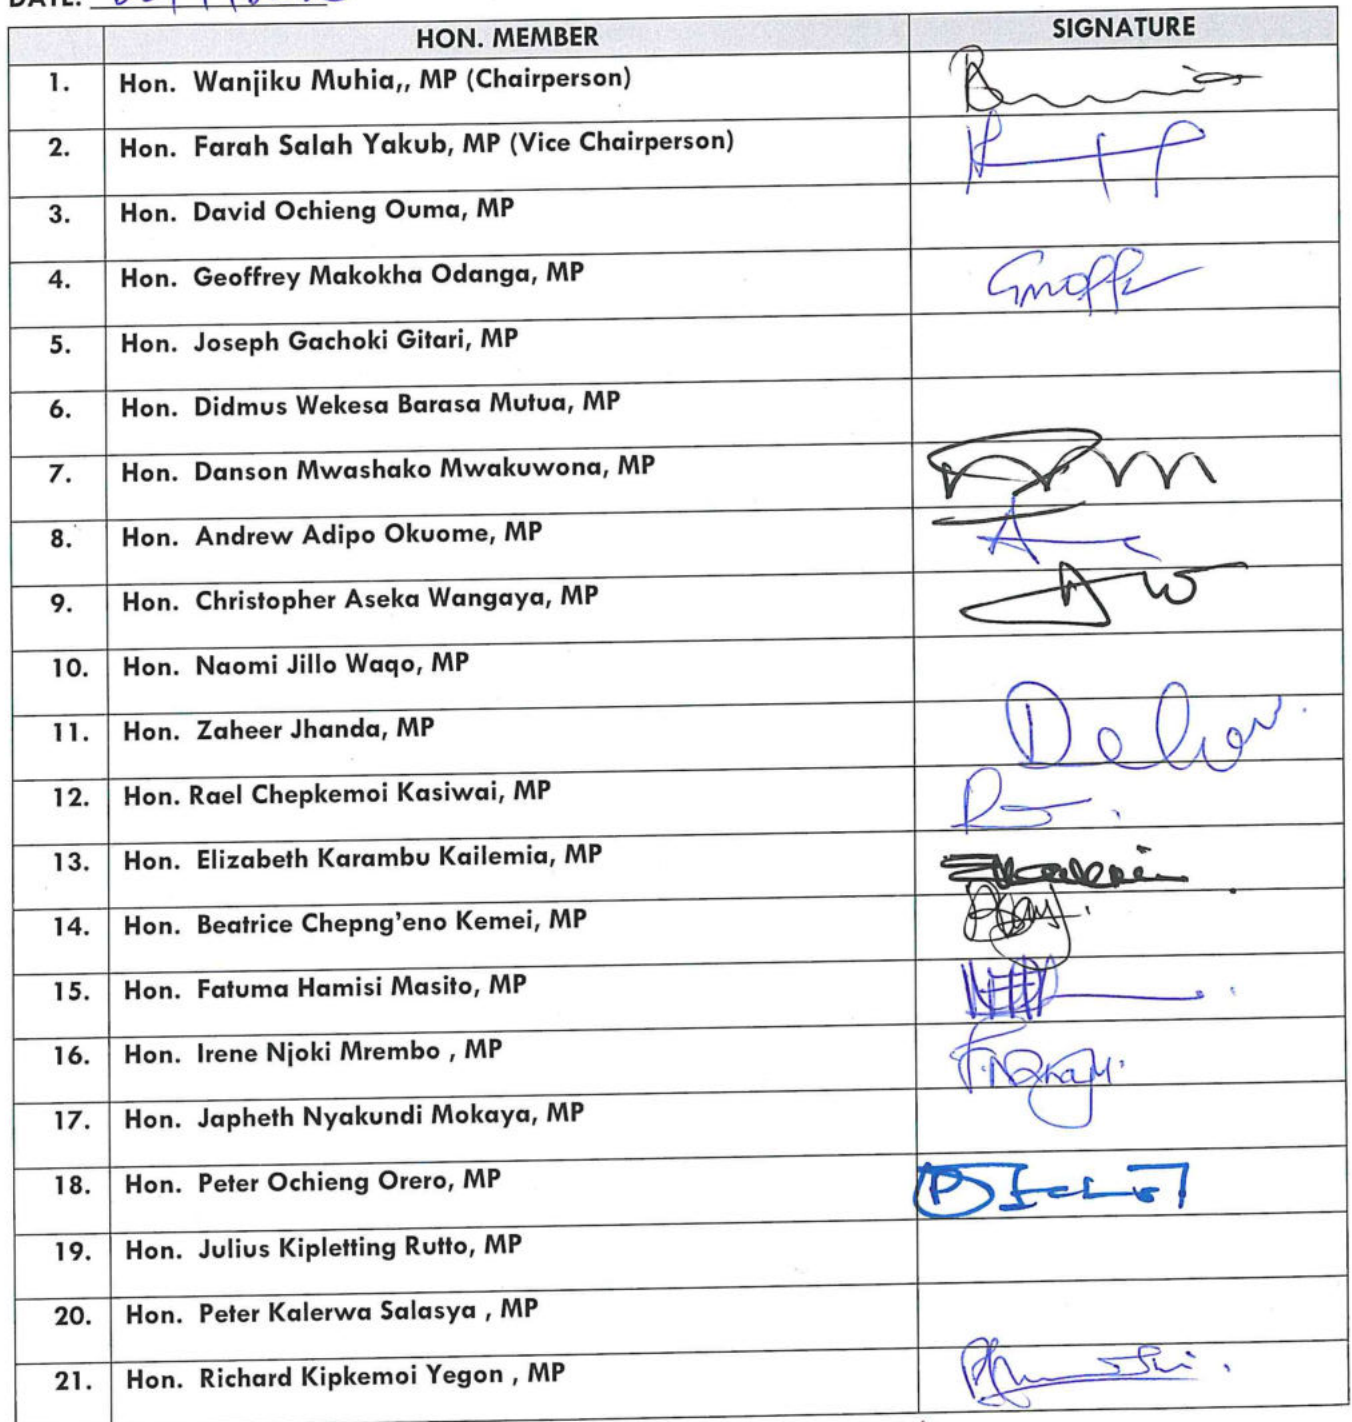 DATE:
HON. MEMBER SIGNATURE
1. Hon. Wanjiku Muhia,, MP (Chairperson)
2. Hon. Farah Salah Yakub, MP (Vice Chairperson)
3. Hon. David Ochieng Ouma, MP
4. Hon. Geoffrey Makokha Odanga, MP
5. Hon. Joseph Gachoki Gitari, MP
6. Hon. Didmus Wekesa Barasa Mutua, MP
7. Hon. Danson Mwashako Mwakuwona, MP
8. Hon. Andrew Adipo Okuome, MP
9. Hon. Christopher Aseka Wangaya, MP
10. Hon. Naomi Jillo Waqo, MP
11. Hon. Zaheer Jhanda, MP
12. Hon. Rael Chepkemoi Kasiwai, MP
13. Hon. Elizabeth Karambu Kailemia, MP
14. Hon. Beatrice Chepng'eno Kemei, MP
15. Hon. Fatuma Hamisi Masito, MP
16. Hon. Irene Njoki Mrembo , MP
17. Hon. Japheth Nyakundi Mokaya, MP
18. Hon. Peter Ochieng Orero, MP
19. Hon. Julius Kipletting Rutto, MP
20. Hon. Peter Kalerwa Salasya , MP
21. Hon. Richard Kipkemoi Yegon , MP